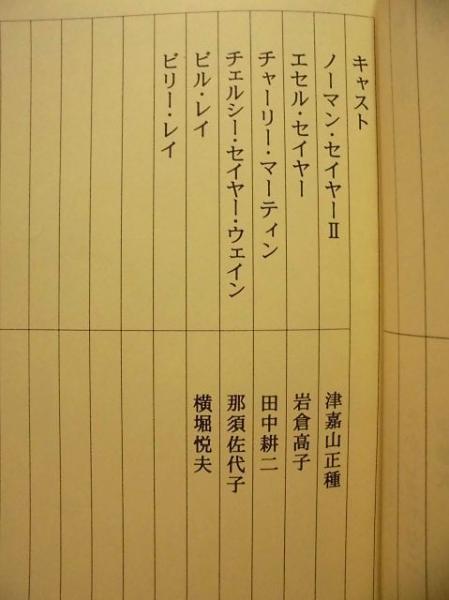 キャスト
ノーマン・セイヤーⅡ 津嘉山正種
エセル・セイヤー 岩倉高子
チャーリー・マーティン 田中耕二
チェルシー・セイヤー・ウェイン 那須佐代子
ビル・レイ 横堀悦夫
ビリー・レイ